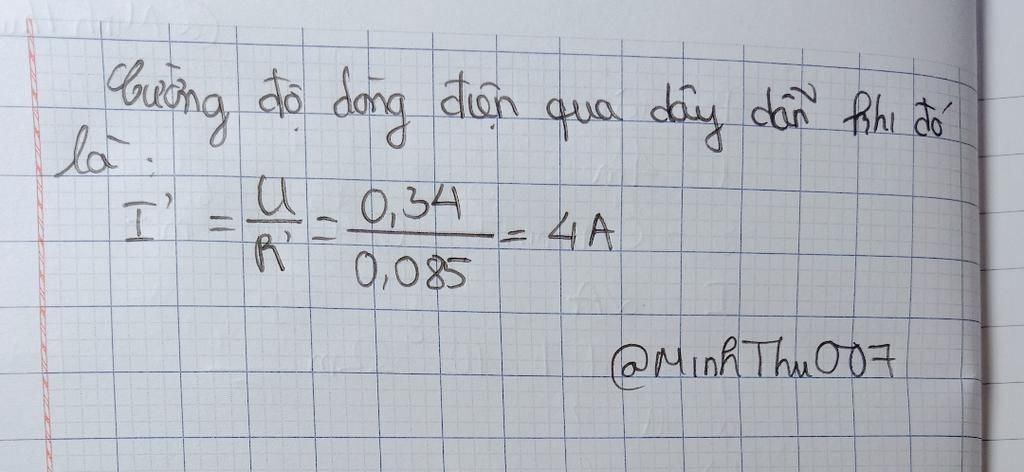 Cường độ dòng điện qua dây dẫn khi đó
là :
I' = U/R' = 0,34/0,085 = 4A
@MinhThu007